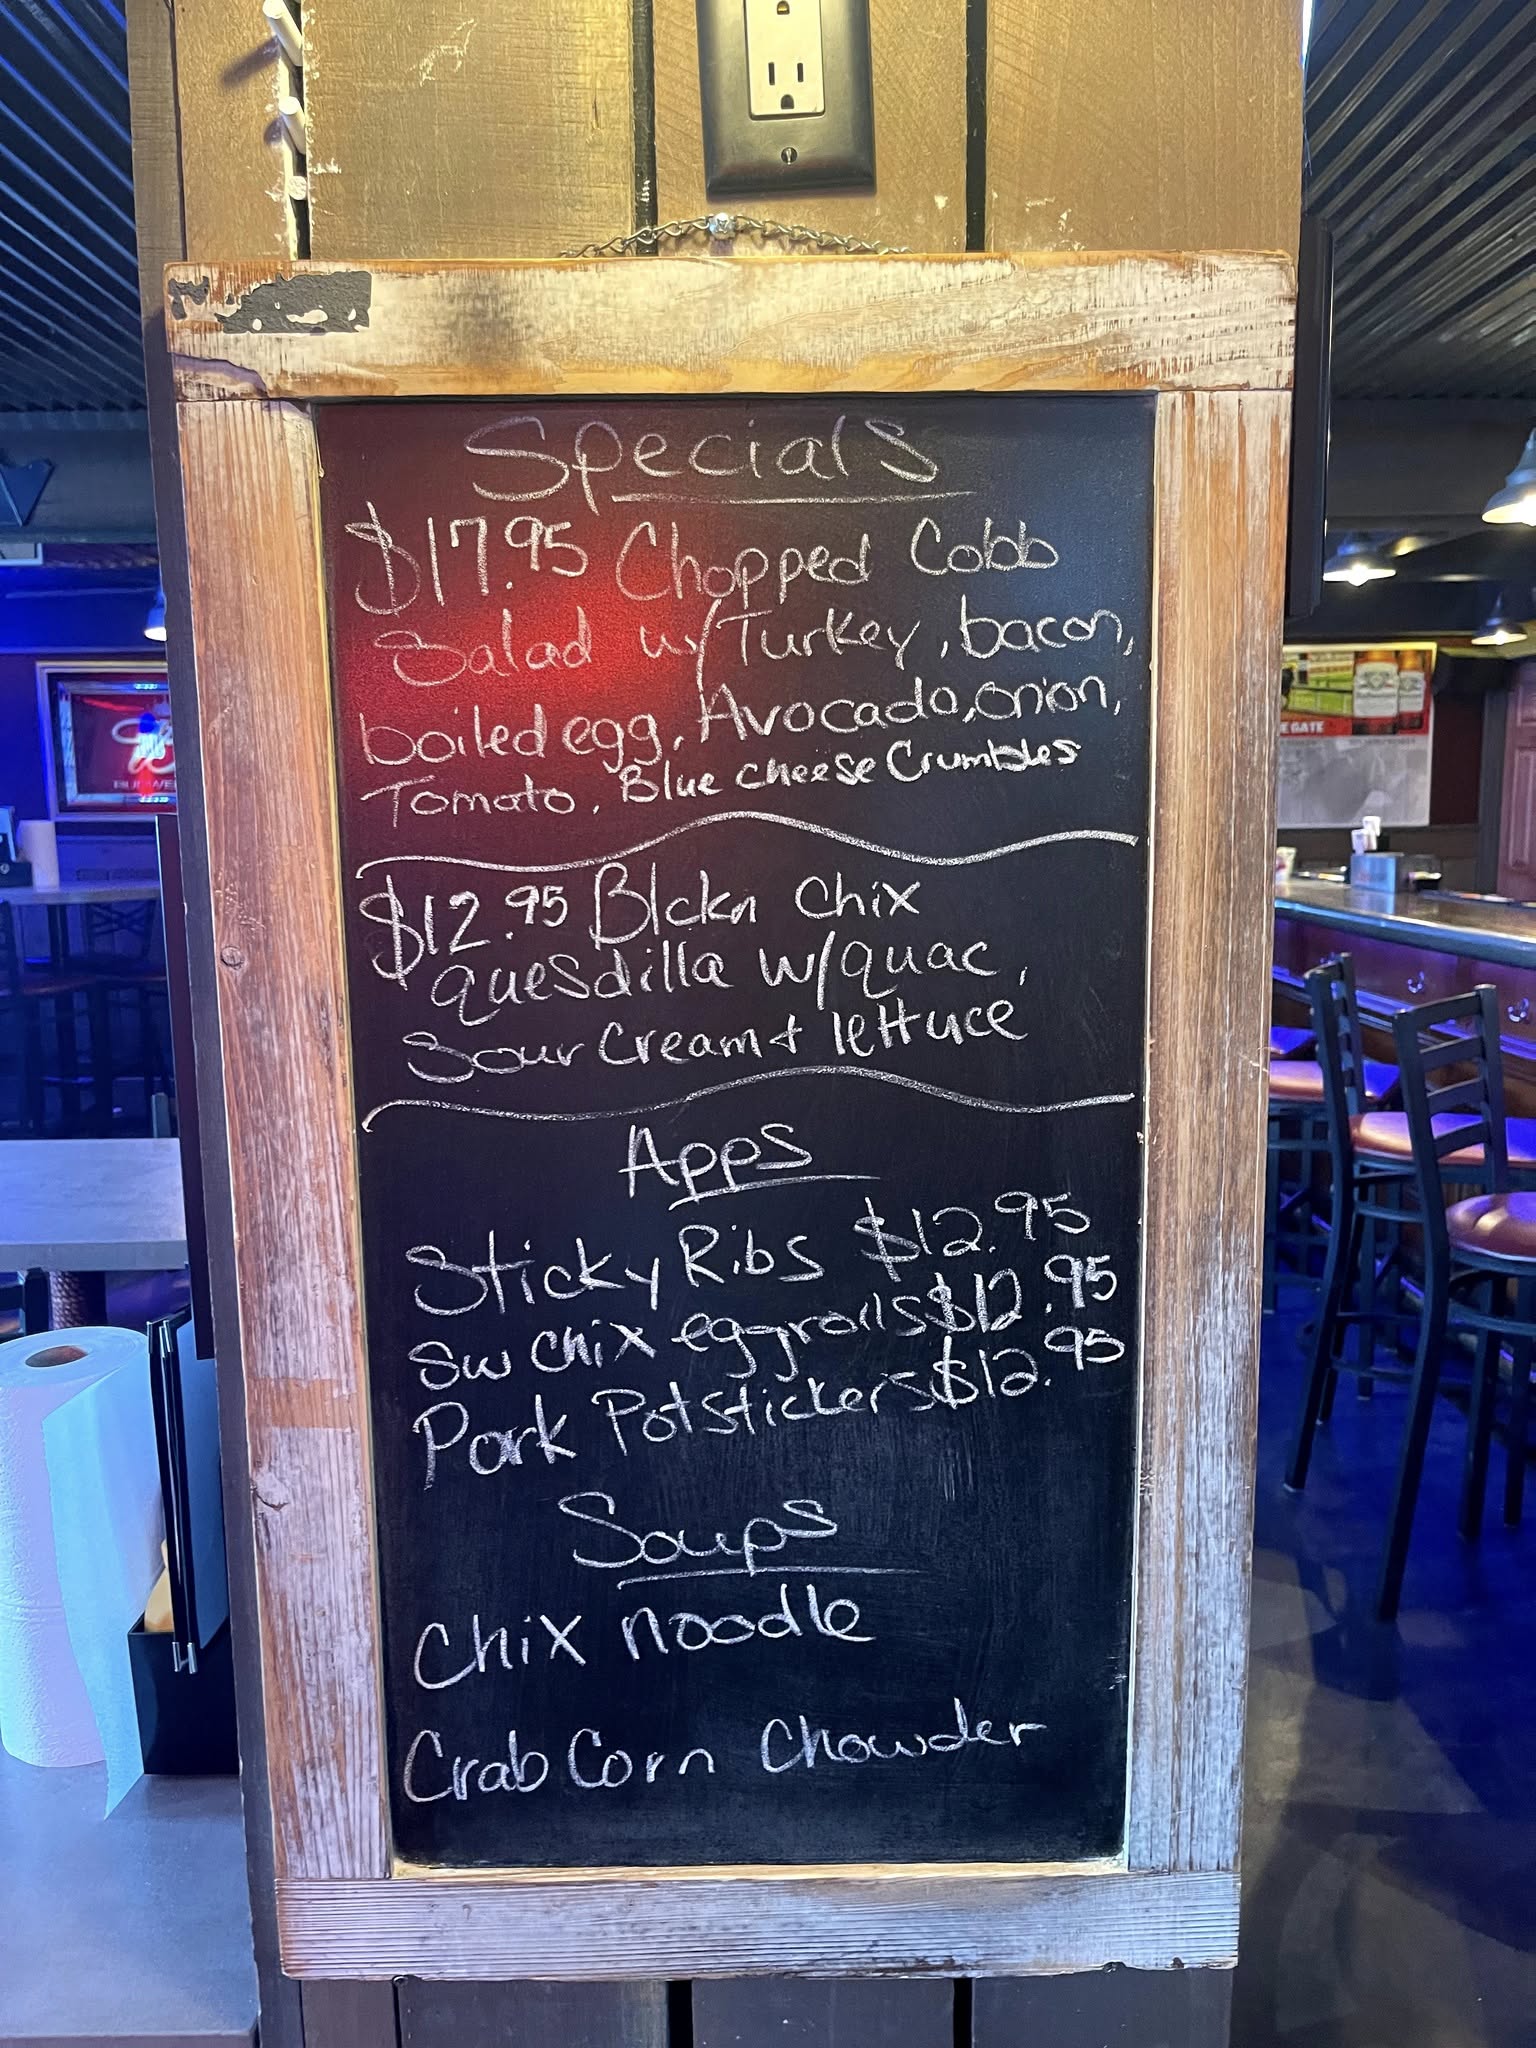 Specials
$17.95 Chopped Cobb
Salad w/Turkey, bacon,
boiled egg, Avocado, onion,
Tomato, Blue cheese Crumbles
$12.95 Blckn Chix
quesdilla w/quac,
Sour Cream + lettuce
Apps
Sticky Ribs $12.95
SW Chix eggrolls $12.95
Pork Potstickers $12.95
Soups
Chix noodle
Crab Corn Chowder
E GATE